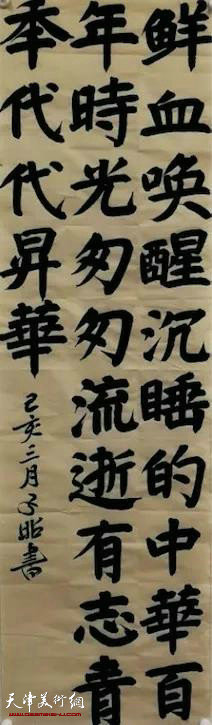 鲜血唤醒沉睡的中華百
年時光匆匆流逝有志青
年代代昇華
己亥三月子昭書
天津美術網